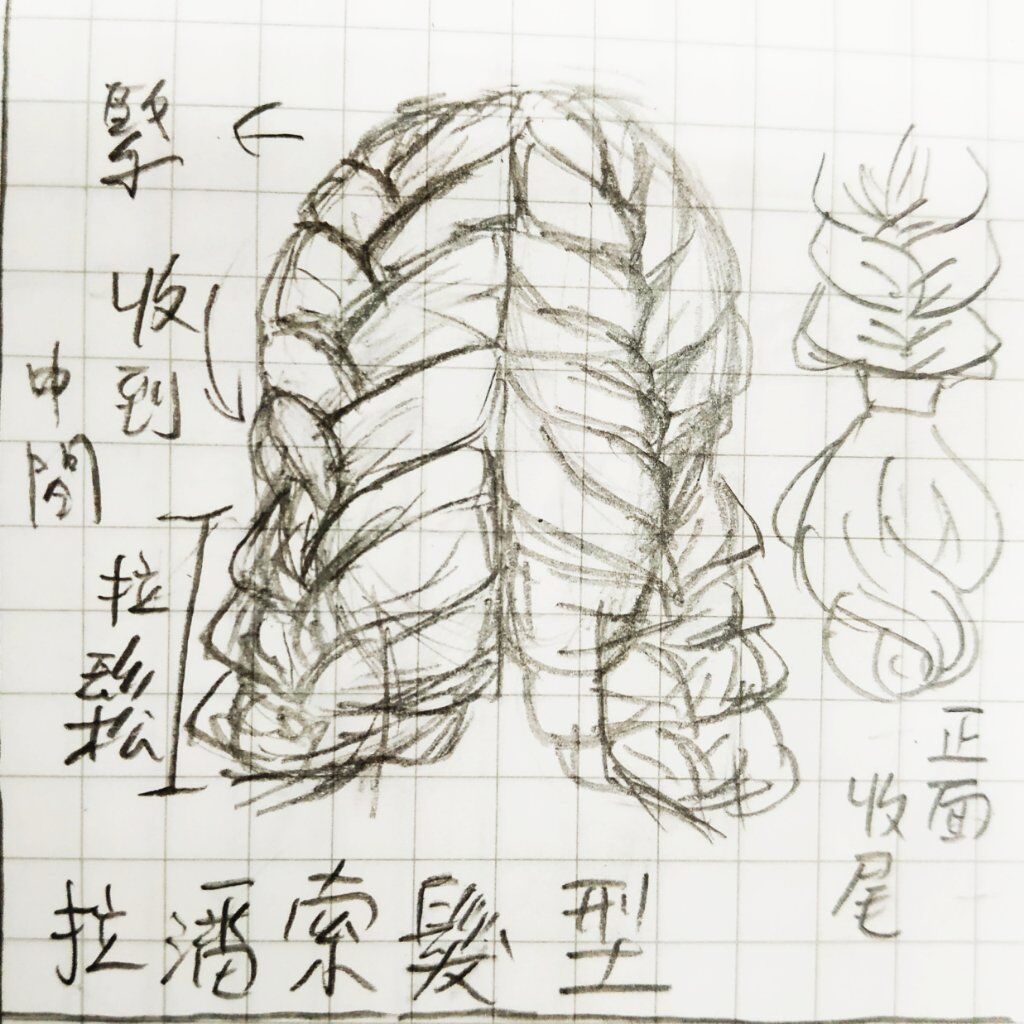 緊
收到
中間
拉鬆
正面
收尾
拉潘索髮型